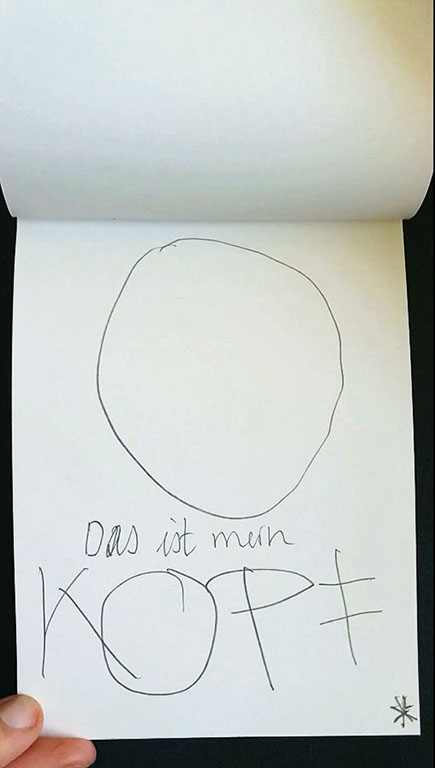 Das ist mein
KOPF